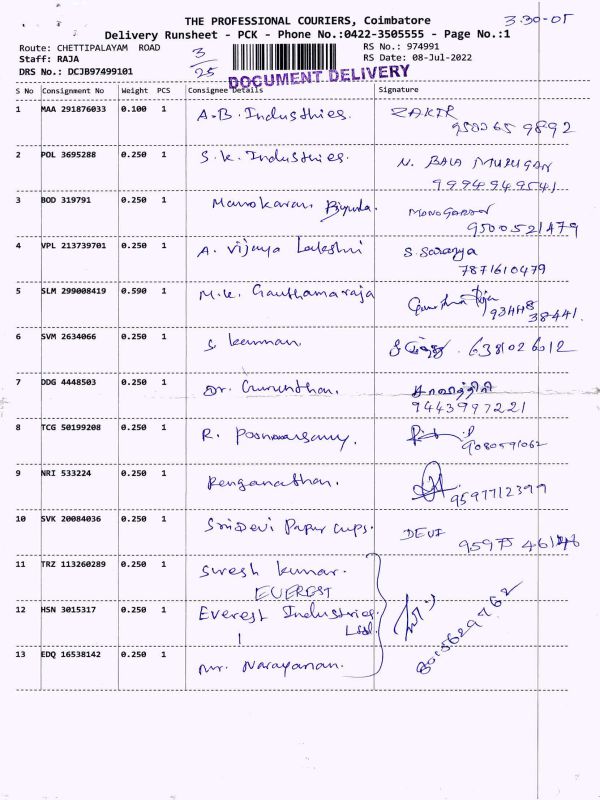 THE PROFESSIONAL COURIERS, Coimbatore
3.30-05
Delivery Runsheet - PCK - Phone No.:0422-3505555 - Page No.:1
Route: CHETTIPALAYAM ROAD
Staff: RAJA
DRS No.: DCJB97499101
3/25
RS No.: 974991
RS Date: 08-Jul-2022
DOCUMENT DELIVERY
S No Consignment No Weight PCS Consignee Details Signature
1 MAA 291876033 0.100 1 A.B. Industries. ZAKIR
9500659892
2 POL 3695288 0.250 1 S.K. Industries. N. BALA MURUGAN
9994949541
3 BOD 319791 0.250 1 Manokaran MANOGARAN
9500521479
4 VPL 213739701 0.250 1 A. Vijaya Lakshmi S. Saranya
7871610479
5 SLM 299008419 0.590 1 M.K. Gauthamaraja
38441.
6 SVM 2634066 0.250 1 S. Kannan. 6381026012
7 DDG 4448503 0.250 1 Dr. Gurunthan.
9443997221
8 TCG 50199208 0.250 1 R. Ponnusamy.
9080591062
9 NRI 533224 0.250 1 Renganathan.
9597712399
10 SVK 20084036 0.250 1 SriDevi Papur Cups. DEVI
95975
11 TRZ 113260289 0.250 1 Suresh Kumar.
EVEREST
12 HSN 3015317 0.250 1 Everest Industries
13 EDQ 16538142 0.250 1 Mr. Narayanan.